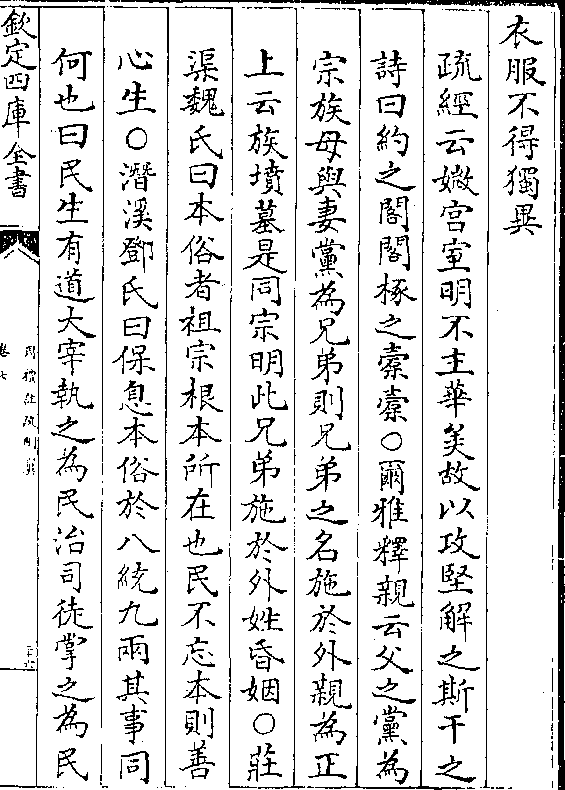 衣服不得獨異
疏經云媺宫室明不主華美故以攻堅解之斯干之
詩曰約之閣閣椓之橐橐○爾雅釋親云父之黨為
宗族母與妻黨為兄弟則兄弟之名施於外親為正
上云族墳墓是同宗明此兄弟施於外姓昏姻○莊
渠魏氏曰本俗者祖宗根本所在也民不忘本則善
心生○潛溪鄧氏曰保息本俗於八統九兩其事同
何也曰民生有道大宰執之為民治司徒掌之為民
欽定四庫全書
卷七